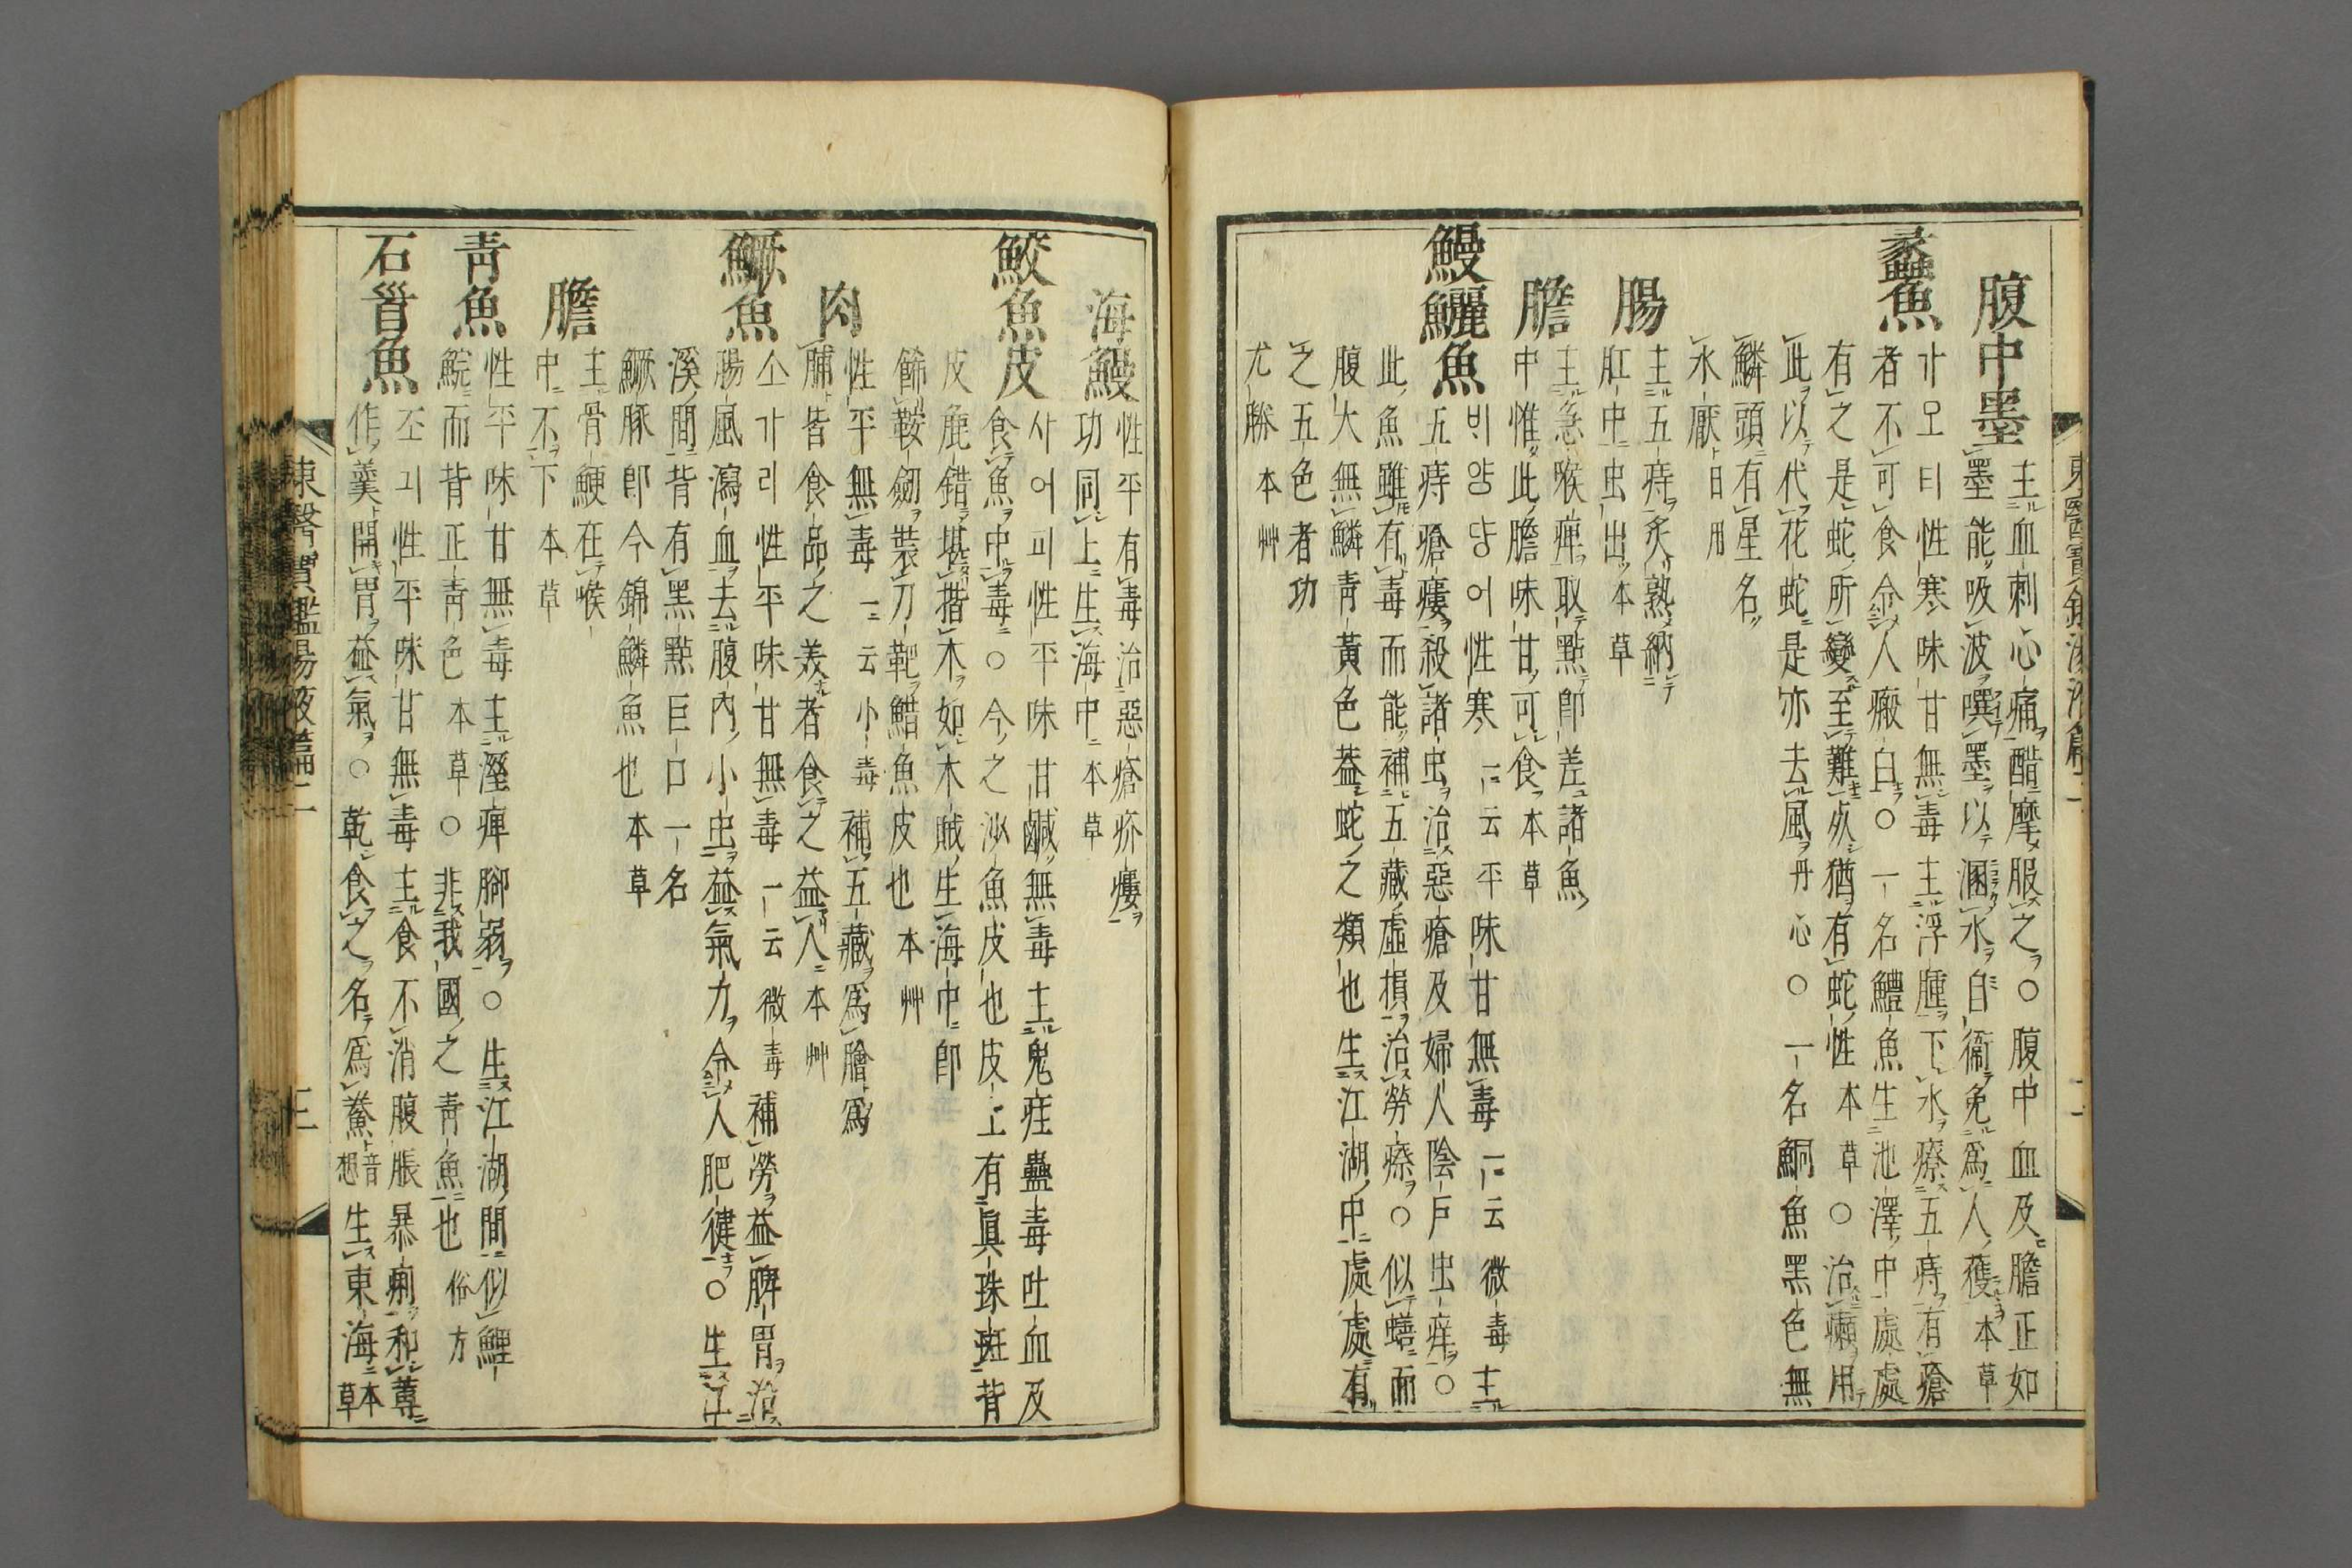 腹中墨 主血刺心痛醋摩服之○腹中血及膽正如
墨能吸波噀墨以溷水自衞免爲人獲 本草
蠡魚 가모티 性寒味甘無毒主浮腫下水療五痔有瘡
者不可食令人瘢白○一名鱧魚生池澤中處處
有之是蛇所變至難死猶有蛇性 本草○治癩用
此以代花蛇是亦去風 丹心○一名鮦魚黑色無
鱗頭有星名
水厭 日用
腸 主五痔炙熟納
肛中虫出 本草
膽 主急喉痺取點卽差諸魚
中惟此膽味甘可食 本草
鰻鱺魚 빈양당어 性寒 一云平 味甘無毒 一云微毒 主
五痔瘡瘻殺諸虫治惡瘡及婦人陰戶虫痒○
此魚雖有毒而能補五藏虛損治勞瘵○似鱔而
腹大無鱗靑黃色葢蛇之類也生江湖中處處有
之五色者功
尤勝 本艸
東醫寶鑑湯液篇二 二
海鰻 性平有毒治惡瘡疥瘻
功同上生海中 本草
鮫魚皮 사어피 性平味甘鹹無毒主鬼疰蠱毒吐血及
食魚中毒○今之沙魚皮也皮上有眞珠斑背
皮麁錯堪揩木如木賊生海中卽
飾鞍劒裝刀靶䱜魚皮也 本艸
肉 性平無毒 一云小毒 補五藏爲膾爲
脯皆食品之美者食之益人 本艸
鱖魚 소가리 性平味甘無毒 一云微毒 補勞益脾胃治
腸風瀉血去腹內小虫益氣力令人肥健○生江
溪間背有黑點巨口一名
鱖豚卽今錦鱗魚也 本草
膽 主骨鯁在喉
中不下 本草
靑魚 性平味甘無毒主溼痺脚弱○生江湖間似鯉
鯇而背正靑色 本草○非我國之靑魚也 俗方
石首魚 조긔 性平味甘無毒主食不消腹脹暴痢和蓴
作羹開胃益氣○乾食之名爲鯗 音想 生東海 本草
東醫寶鑑湯液篇二 三